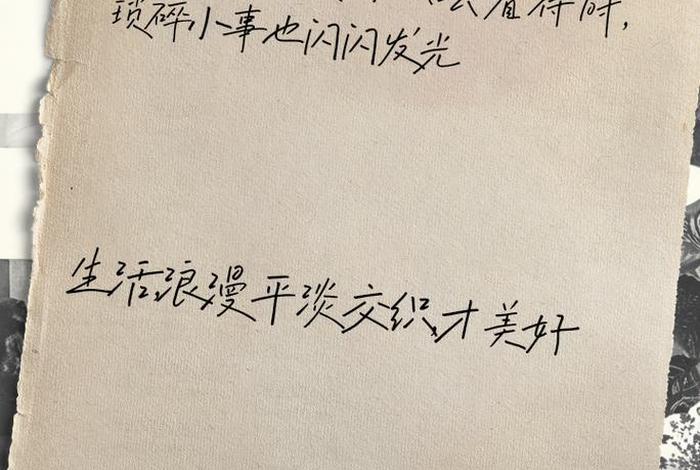 琐碎小事也闪闪发光
生活,浪漫平淡交织,才美好